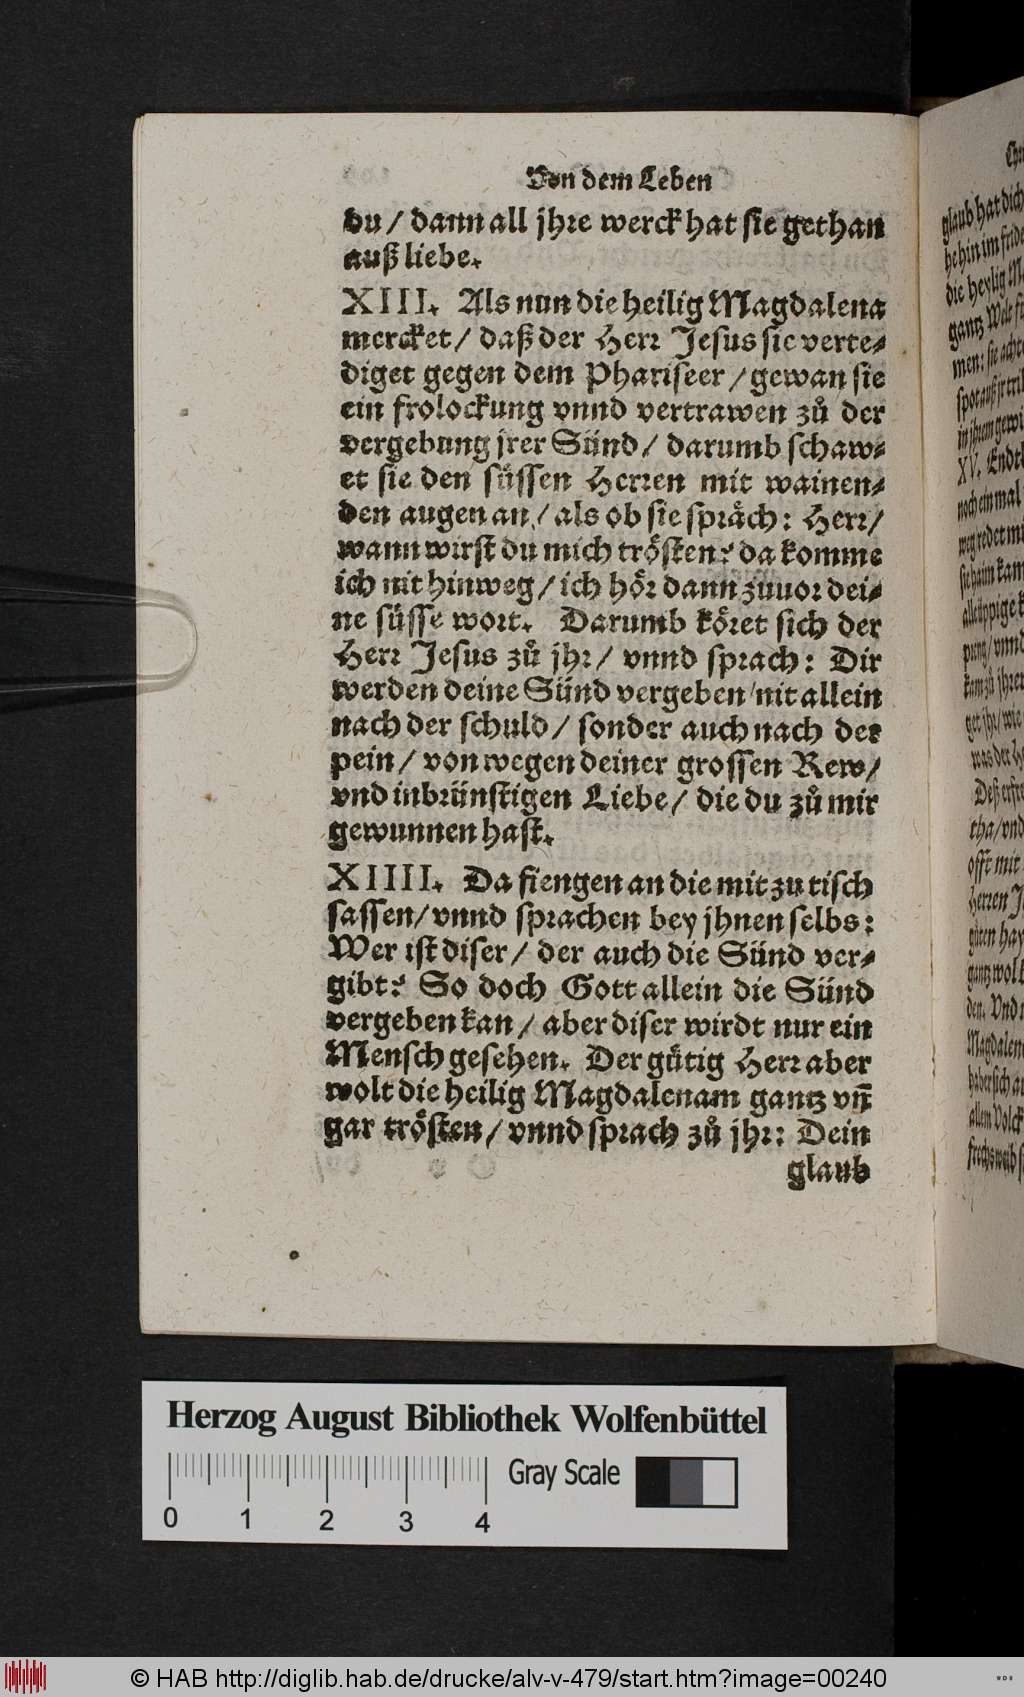 Von dem Leben
du / dann all jhre werck hat sie gethan
auß liebe.
XIII. Als nun die heilig Magdalena
mercket / daß der Herr Jesus sie verte-
diget gegen dem Phariseer / gewan sie
ein frolockung vnnd vertrawen zů der
vergebung jrer Sünd / darumb schaw-
et sie den süssen Herren mit wainen-
den augen an / als ob sie spräch: Herr /
wann wirst du mich trösten? da komme
ich nit hinweg / ich hör dann zuuor dei-
ne süsse wort. Darumb köret sich der
Herr Jesus zů jhr / vnnd sprach: Dir
werden deine Sünd vergeben / nit allein
nach der schuld / sonder auch nach der
pein / von wegen deiner grossen Rew /
vnd inbrünstigen Liebe / die du zů mir
gewunnen hast.
XIIII. Da fiengen an die mit zu tisch
sassen / vnnd sprachen bey jhnen selbs:
Wer ist diser / der auch die Sünd ver-
gibt? So doch Gott allein die Sünd
vergeben kan / aber diser wirdt nur ein
Mensch gesehen. Der gütig Herr aber
wolt die heilig Magdalenam gantz vñ
gar trösten / vnnd sprach zů jhr: Dein
glaub
glaub hat dich
he hin im fride
die heylig M
gantz Welt
men: sie
XV. Endt
noch ein mal
weg redet
Herren J
Magdalen
allem Volck
Herzog August Bibliothek Wolfenbüttel
Gray Scale
0 1 2 3 4
© HAB http://diglib.hab.de/drucke/alv-v-479/start.htm?image=00240